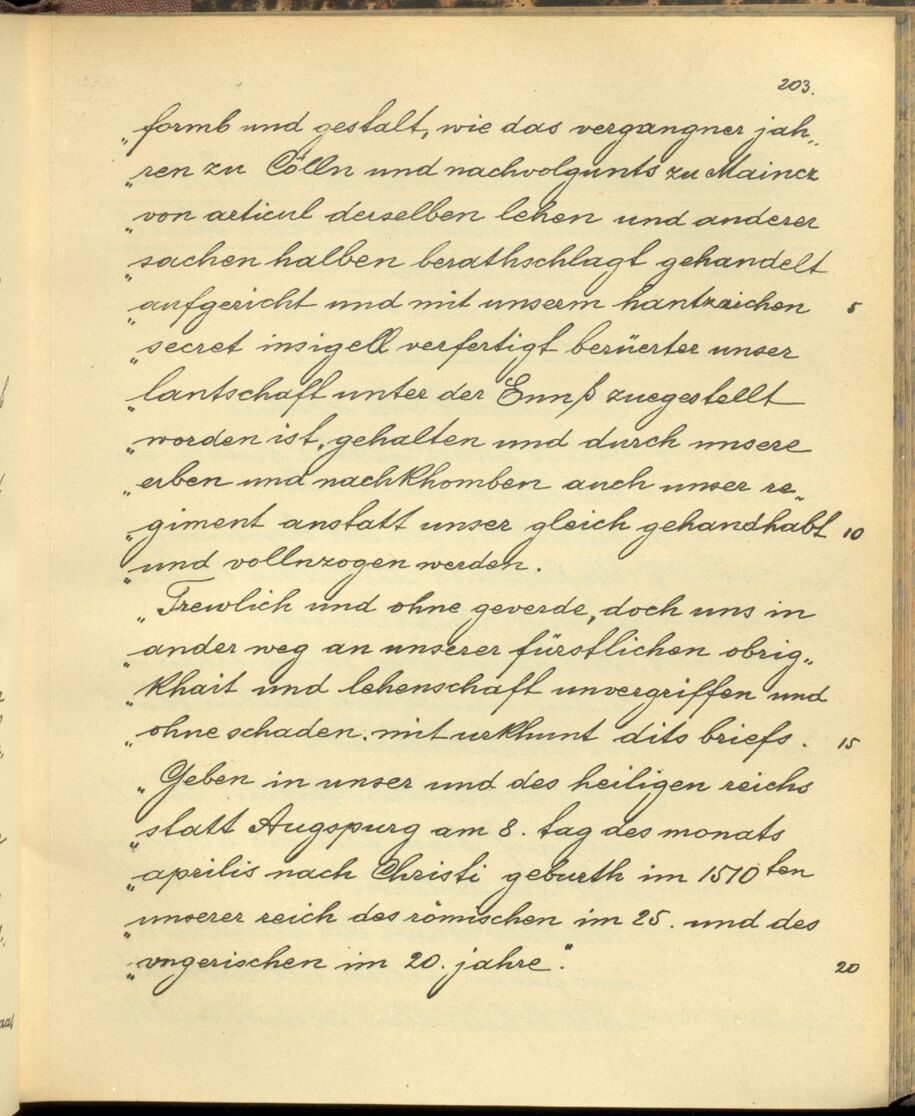 203.
„formb und gestalt, wie das vergangner jah„
„ren zu Cölln und nachvolgunts zu Maincz
„von articul derselben lehen und anderer
„sachen halben berathschlagt gehandelt
„aufgericht und mit unserm hantzaichen 5
„secret insigell verfertigt berüerter unser
„lantschaft unter der Ennß zuegestellt
„worden ist, gehalten und durch unsere
„erben und nachkhomben auch unser re„
„giment anstatt unser gleich gehandhabt 10
„und vollnzogen werden.
„Trewlich und ohne geverde, doch uns in
„ander weg an unserer fürstlichen obrig„
„khait und lehenschaft unvergriffen und
„ohne schaden. mit urkhunt dits briefs. 15
„Geben in unser und des heiligen reichs
„statt Augspurg am 8. tag des monats
„aprilis nach Christi geburth im 1510ten
„unserer reich des römischen im 25. und des
„vngerischen im 20. jahre.“ 20